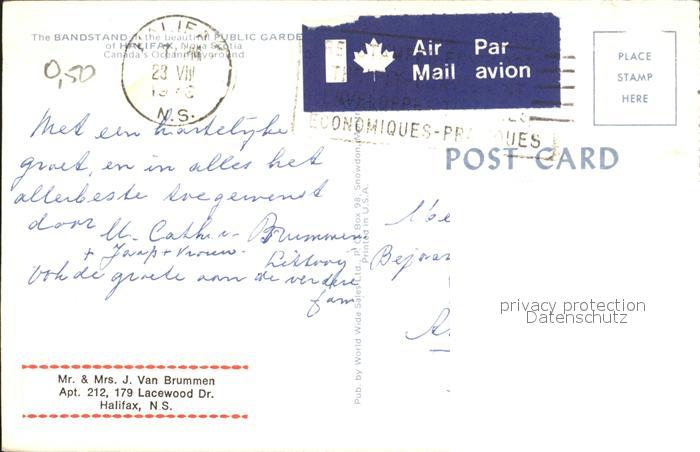 The BANDSTAND in the beautiful PUBLIC GARDE
of HALIFAX, Nova Scotia
Canada's Ocean Playground
0,50
HALIFAX
23 VIII
N.S.
Air Par
Mail avion
ECONOMIQUES-PRATIQUES
PLACE
STAMP
HERE
POST CARD
Met een hartelijke
groet, en in alles het
allerbeste toegewenst
door
M. Cathr. Brummen
+ Jaap + Vrouw
Ook de groete aan de verdere
fam
Pub. by World Wide Sales Ltd., P.O. Box 98, Snowdon
Printed in U.S.A.
privacy protection
Datenschutz
Mr. & Mrs. J. Van Brummen
Apt. 212, 179 Lacewood Dr.
Halifax, N S.